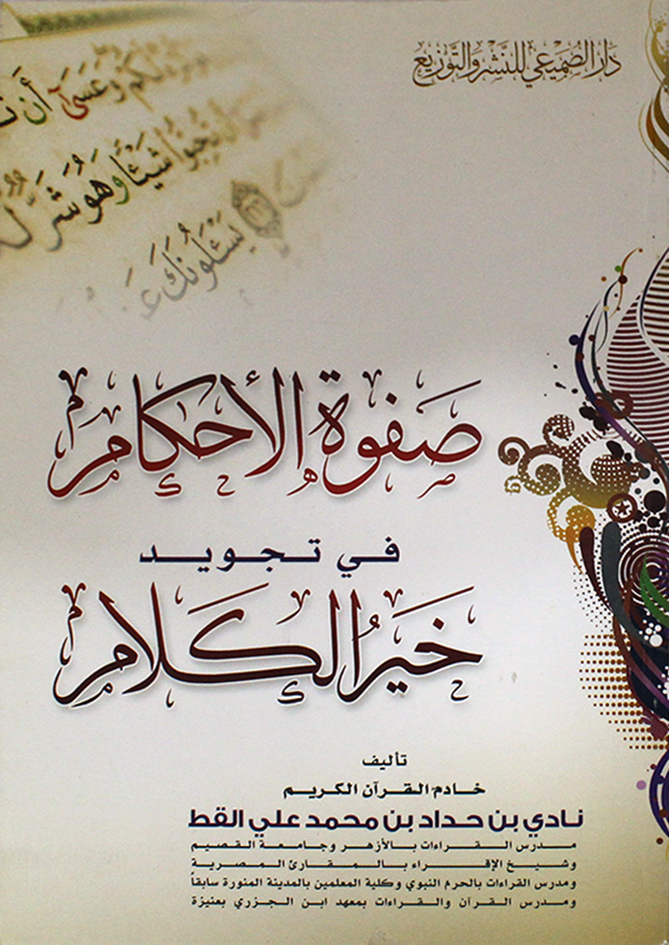 دار الصميعي للنشر والتوزيع
وعسى أن
شيئا وهو شر
يسئلونك
صفوة الأحكام
في تجويد
خير الكلام
تأليف
خادم القرآن الكريم
نادي بن حداد بن محمد علي القط
مدرس القراءات بالأزهر وجامعة القصيم
وشيخ الإقراء بالمقارئ المصرية
ومدرس القراءات بالحرم النبوي وكلية المعلمين بالمدينة المنورة سابقاً
ومدرس القرآن والقراءات بمعهد ابن الجزري بعنيزة